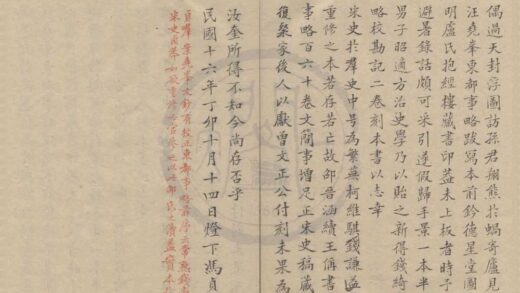 偶過天封浮圖訪孫君翔熊於蝸寄廬見
汪堯峯東都事略跋寫本前鈐德星堂圖
明盧氏抱經樓藏書印蓋未上板者時子
避暑錄話頗可采引遂假歸手景一本半
男子昭適方治史學乃以貽之新得錢綺
略校勘記二卷刻本書以志幸
宋史於羣史中号為繁蕪柯維騏錢謙益
重修之本若存若亡故邵晉涵續王偁書
事略百六十卷文簡事增足正宋史稿藏
復粲家後人以獻曾文正公付刻未果為
汝奎所得不知今尚存否乎
民國十六年丁卯十月十四日燈下馮貞
貞羣案堯峯文鈔有校正東都事略前序云常熟錢
宋史